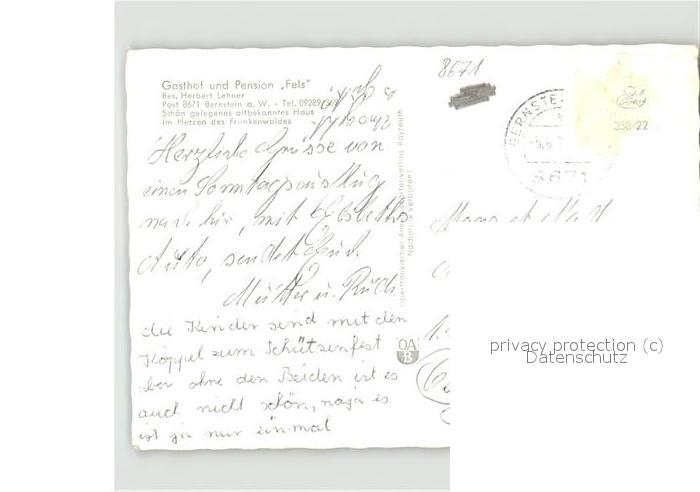 Gasthof und Pension „Fels"
Bes. Herbert Lehner
Post 8671 Bernstein a. W. - Tel. 09289/
Schön gelegenes altbekanntes Haus
im Herzen des Frankenwaldes
8671
BERNSTE
8671
Herzliche Grüsse von
einen Sonntagsausflug
hir, mit Elsbeths
Auto, sendet Euch
Mutter u. Rudi
die Kinder send mit den
Koppel zum Schützenfest
aber ohne den Beiden ist es
auch nicht schön, naja es
ist ja nur einmal
Nachdruck verboten
OA
B
privacy protection (c)
Datenschutz